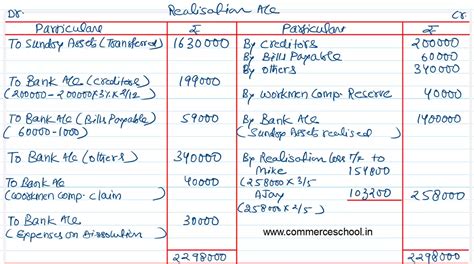 Realisation A/c
Dr. Cr
Particulars ₹ Particulars ₹
To Sundry Assets (Transferred) 1630000 By Creditors 200000
By Bills Payable 60000
By others 340000
To Bank A/c (Creditors) 199000
(200000 - 200000 x 3% x 2/12)
By Workmen Comp. Reserve 40000
To Bank A/c (Bills Payable) 59000 By Bank A/c 1400000
(60000-1000) (Sundry Assets realised)
To Bank A/c (others) 340000 By Realisation Loss T/f to
Mike 154800
To Bank A/c 40000 (258000 x 3/5)
(Workmen Comp. claim) AJay 103200 258000
(258000 x 2/5)
To Bank A/c 30000
(Expenses on Dissolution)
www.commerceschool.in
2298000 2298000